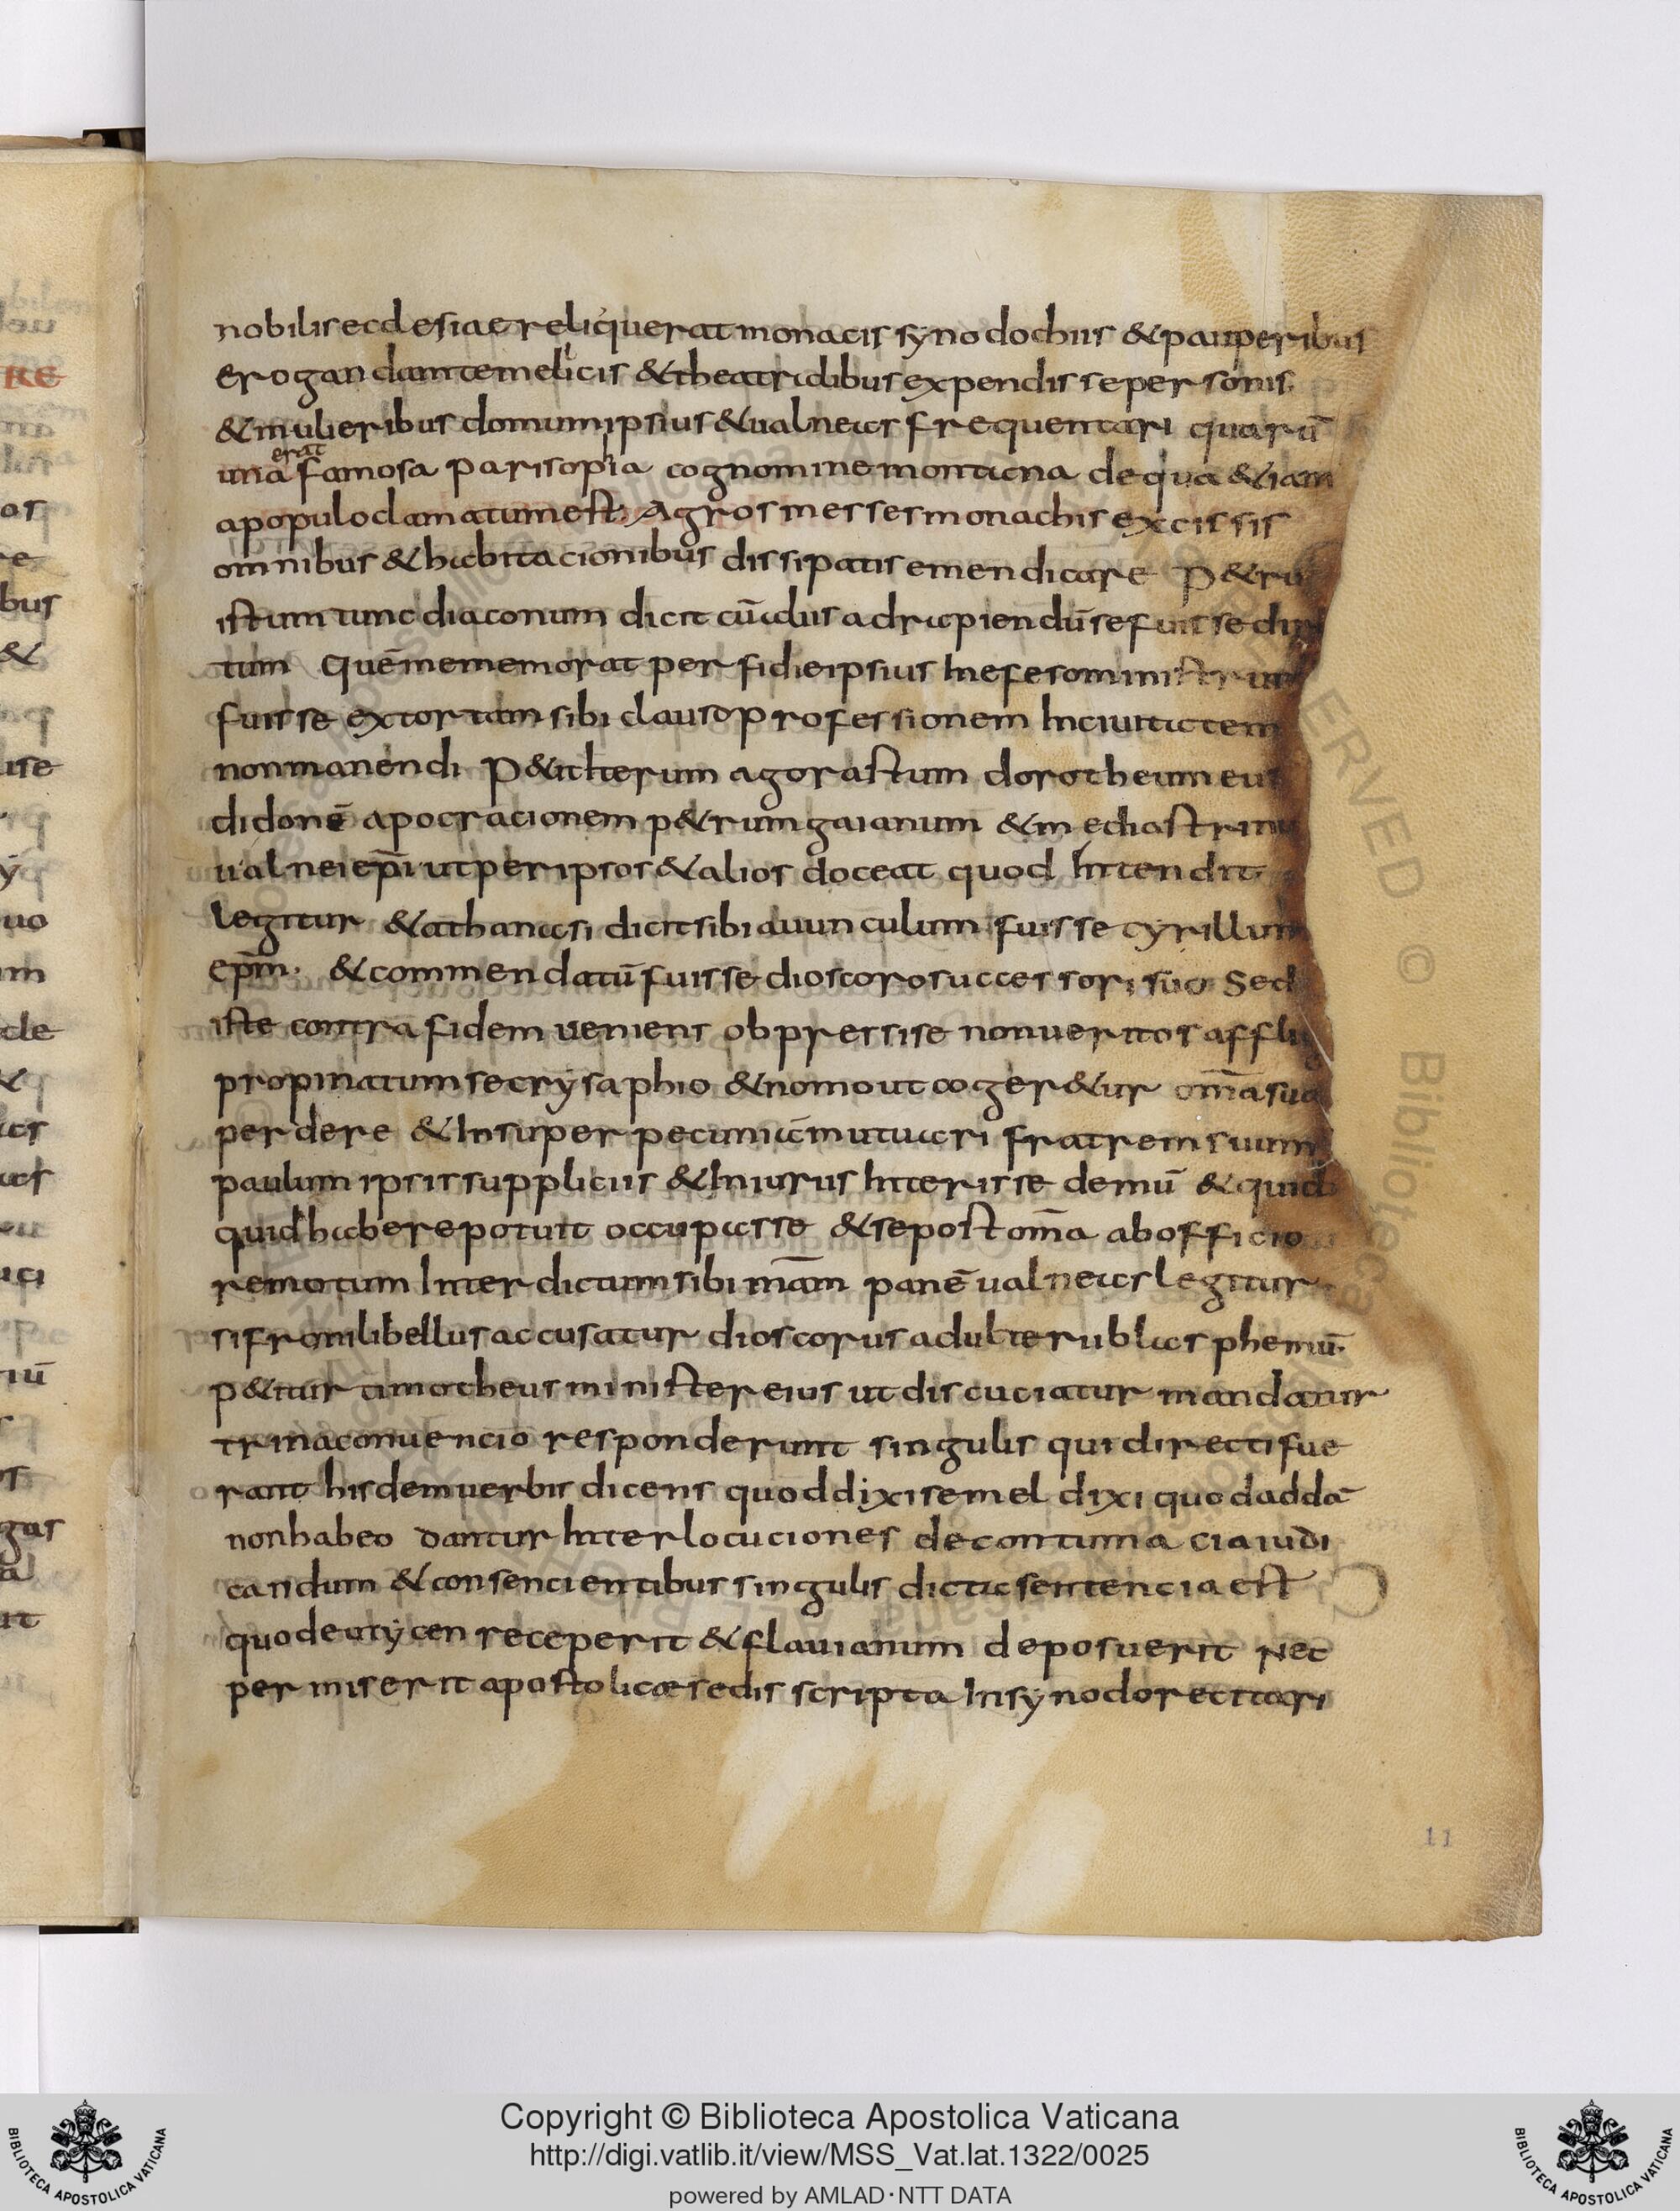 nobilis ecclesiae reliquerat monacis synodochiis & pauperibus
erogandam temelicis & theatridibus expendisse personis.
& mulieribus domum ipsius & ualneas frequentari quarū
una erat famosa parisophia cognomine montana de qua & iam
a populo clamatum est. Agros messes monachis excissis
omnibus & habitacionibus dissipatis emendicare P&ru
istum tunc diaconum dicit cū aliis ad rapiendū se fuisse
tum Quē me memorat perfidie ipsius In efeso ministrum
fuisse extortam sibi clauso professionem In ciuitatem
non manendi P& iterum agorastum dorotheum eus
didonē apocracionem p&rum gaianum & mediastrinu
ualnei ep̄i ut per ipsos & alios doceat quod Intendit
legitur & athanasi dicit sibi auunculum fuisse cyrillum
ep̄m. & commendatū fuisse dioscoro successori suo Sed
iste contra fidem ueniens obpressise non ueritos afflig
propinatum se crysaphio & nomo ut coger&ur om̄a sua
perdere & Insuper pecuniam mutuari fratrem suum
paulum ipsis suppliciis & Iniuriis Interisse demū & quid
quid habere potuit occupasse & se post om̄a ab officio
remotum Interdictum sibi mām panē ualneas legitur
sifroni libellus accusatur dioscorus adulteriu blasphemiū.
p&itur timotheus minister eius ut discuciatur mandatur
trina conuencio responderunt singulis qui directi fue
rant hisdem uerbis dicens quod dixi semel dixi quod addā
non habeo Dantur Interlocuciones de contumacia iudi
candum & consencientibus singulis dicta sentencia est
quod eutycen receperit & flauianum deposuerit Nec
permiserit apostolicae sedis scripta In synodo recitari
11
Copyright © Biblioteca Apostolica Vaticana
http://digi.vatlib.it/view/MSS_Vat.lat.1322/0025
powered by AMLAD·NTT DATA